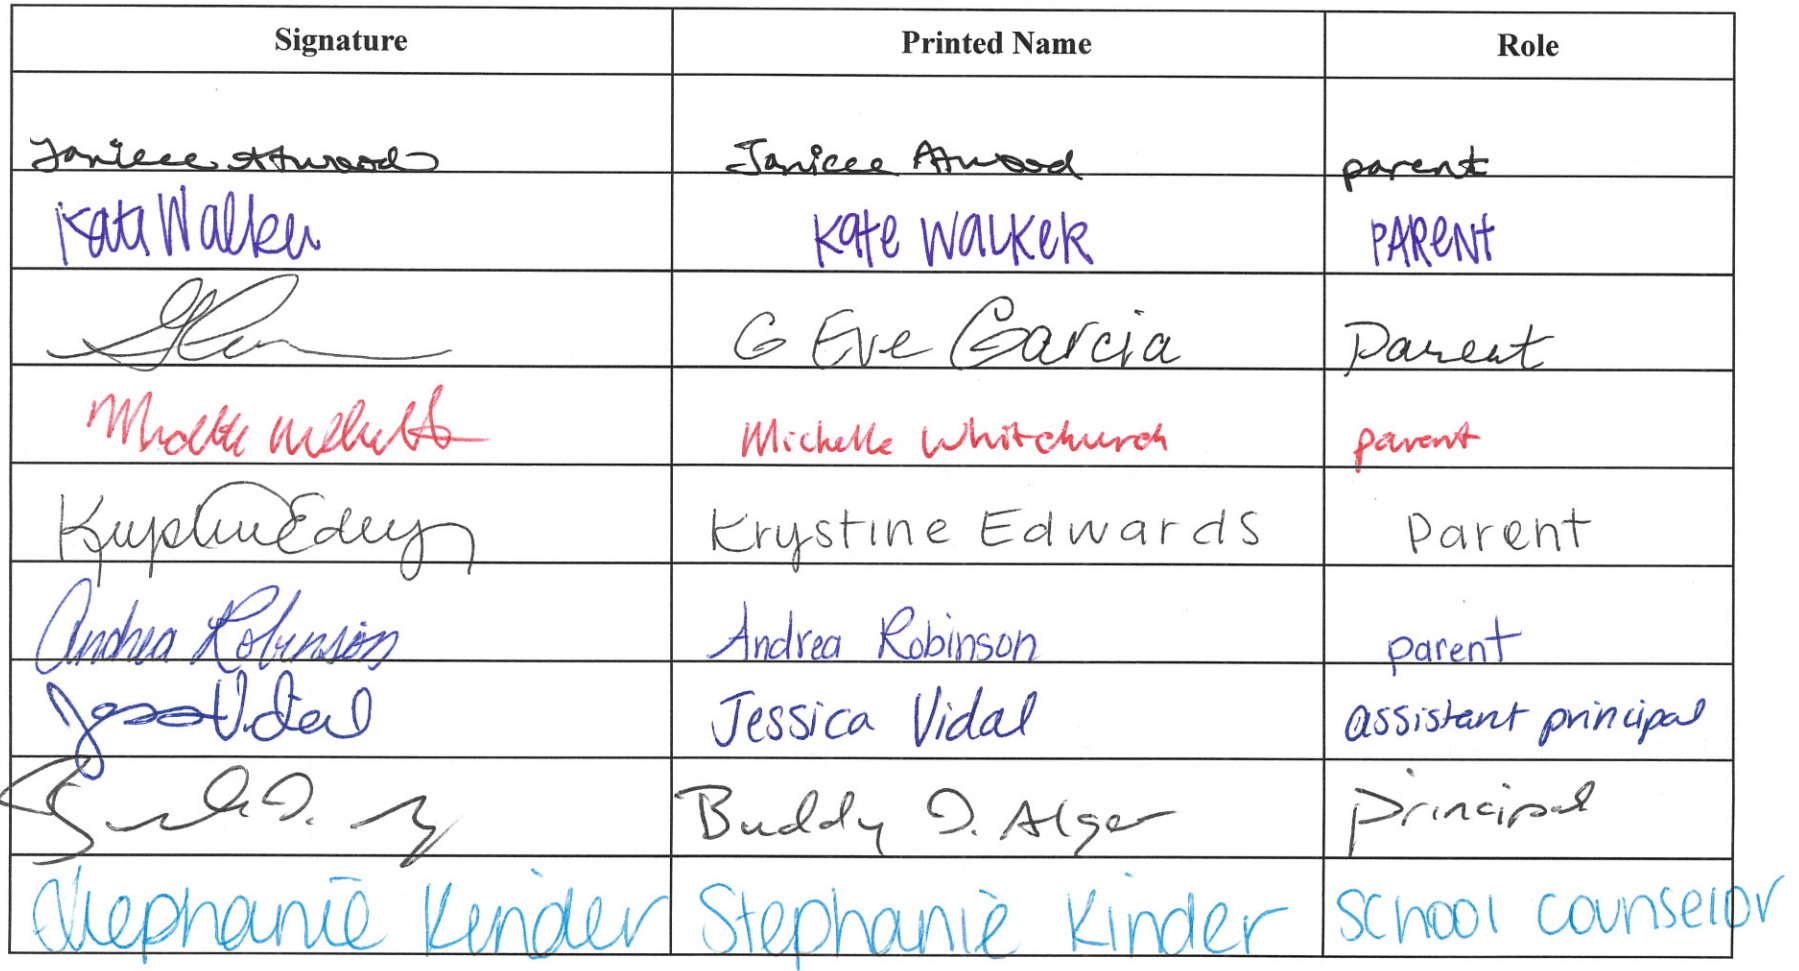 Signature Printed Name Role
Janiece Atwood Janicee Atwood parent
Kate Walker Kate Walker PARENT
G Eve Garcia Parent
Michelle Whitchurch parent
Krystine Edwards Parent
Andrea Robinson Andrea Robinson parent
Jess Vidal Jessica Vidal assistant principal
Buddy D. Alger principal
Stephanie Kinder Stephanie Kinder school counselor